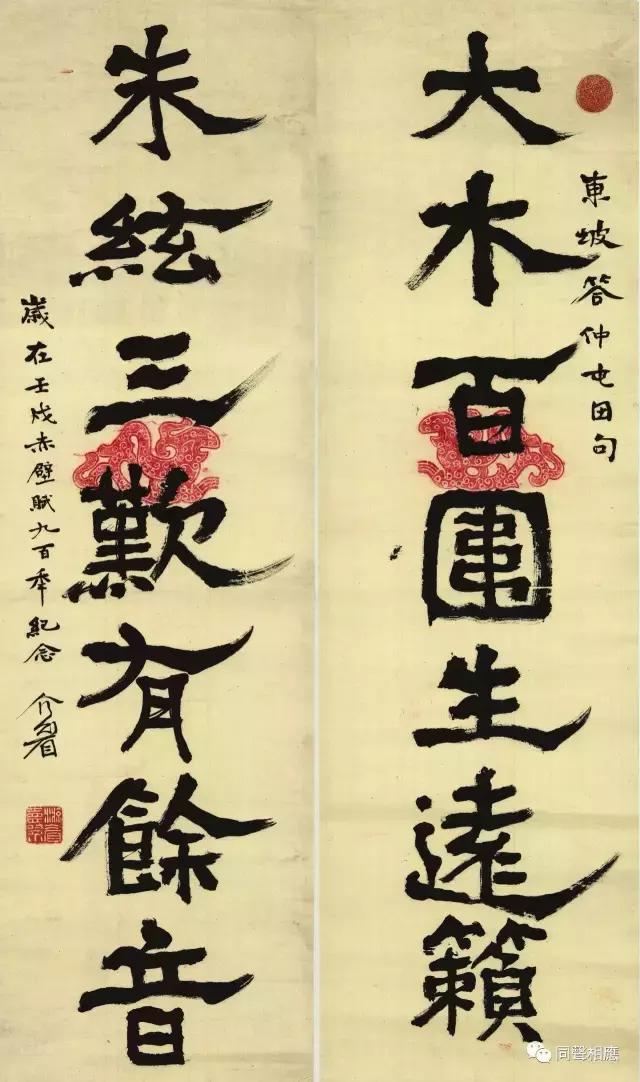 東坡答仲屯田句
大木百圍生遠籟
朱絃三歎有餘音
歲在壬戌赤壁賦九百年紀念 介眉
同聲相應